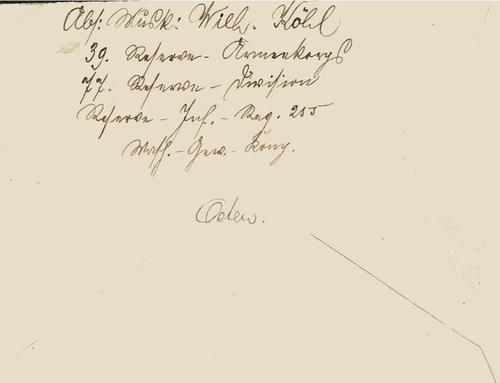 Abs: Musk: Wilh. Köhl
39. Reserve - Armeekorps
77. Reserve - Division
Reserve - Inf. - Reg. 255
Masch. - Gew. - Komp.
Osten.